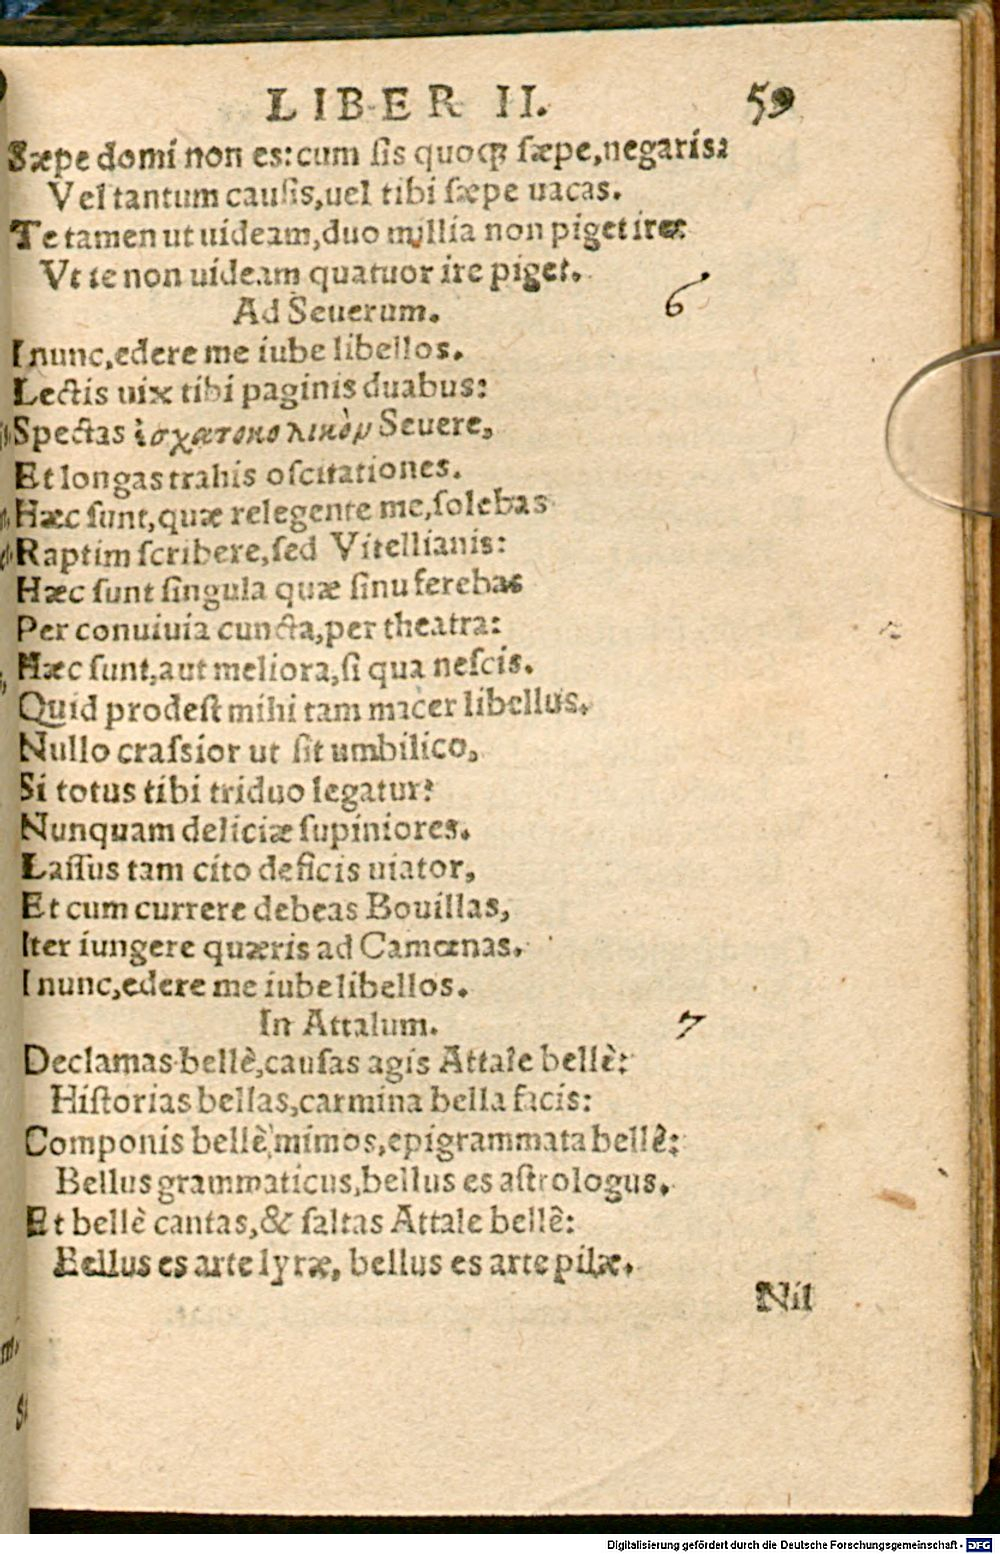 LIBER II. 59
Sæpe domi non es: cum sis quoqꝫ sæpe, negaris:
Vel tantum causis, uel tibi sæpe uacas.
Te tamen ut uideam, duo millia non piget ire:
Vt te non uideam quatuor ire piget.
Ad Seuerum. 6
I nunc, edere me iube libellos.
Lectis uix tibi paginis duabus:
Spectas ἐσχατοκολικὸν Seuere,
Et longas trahis oscitationes.
Hæc sunt, quæ relegente me, solebas
Raptim scribere, sed Vitellianis:
Hæc sunt singula quæ sinu ferebas
Per conuiuia cuncta, per theatra:
Hæc sunt, aut meliora, si qua nescis.
Quid prodest mihi tam macer libellus,
Nullo crassior ut sit umbilico,
Si totus tibi triduo legatur?
Nunquam deliciæ supiniores.
Lassus tam cito deficis uiator,
Et cum currere debeas Bouillas,
Iter iungere quæris ad Camœnas.
I nunc, edere me iube libellos.
In Attalum. 7
Declamas bellè, causas agis Attale bellè:
Historias bellas, carmina bella facis:
Componis bellè mimos, epigrammata bellè:
Bellus grammaticus, bellus es astrologus.
Et bellè cantas, & saltas Attale bellè:
Bellus es arte lyræ, bellus es arte pilæ.
Nil
Digitalisierung gefördert durch die Deutsche Forschungsgemeinschaft - DFG